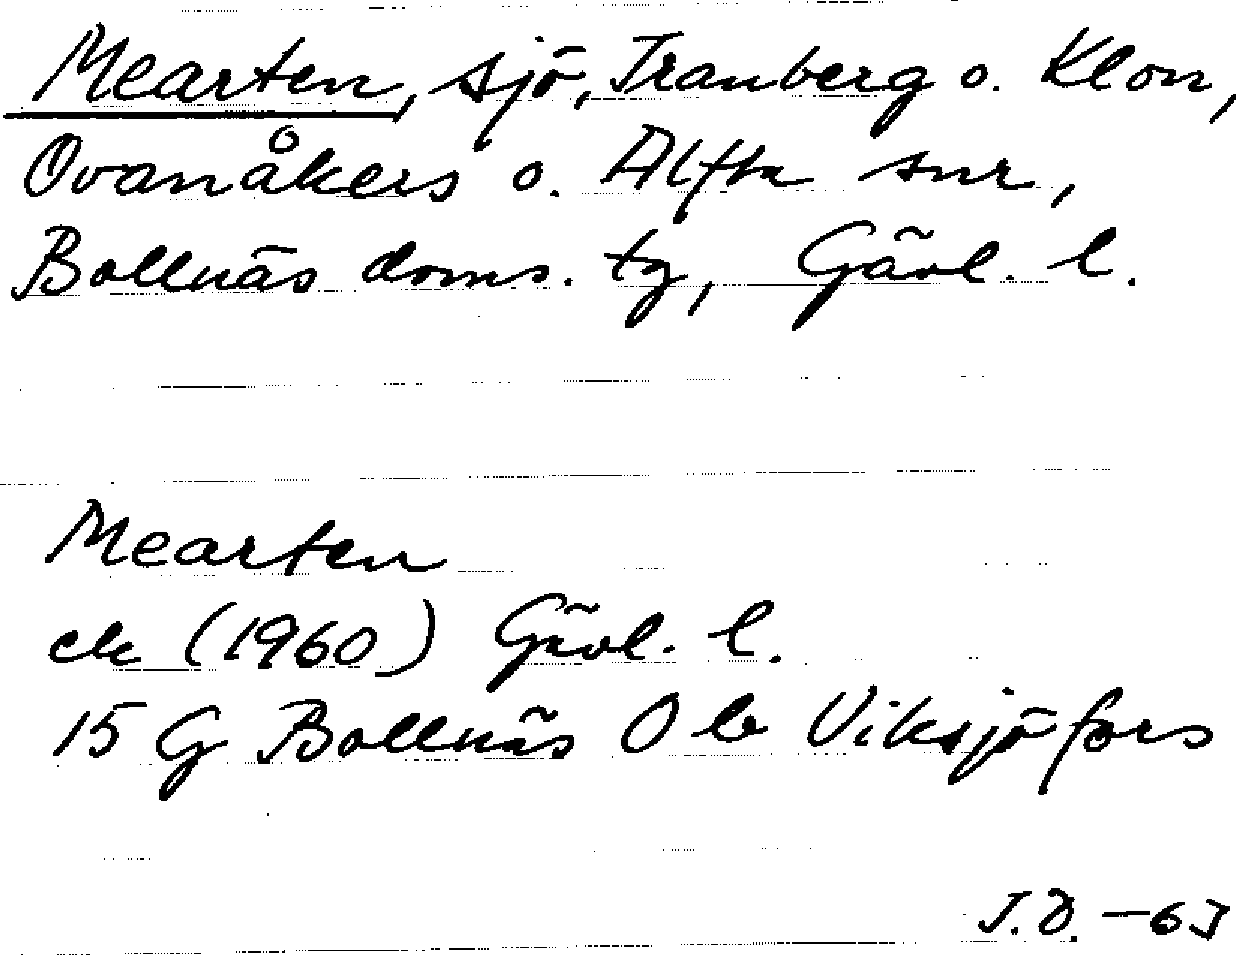 Mearten, sjö, Tranberg o. Klon,
Ovanåkers o. Alfta snr,
Bollnäs doms. tg, Gävl. l.
Mearten
ek (1960) Gävl. l.
15 G Bollnäs O b Viksjöfors